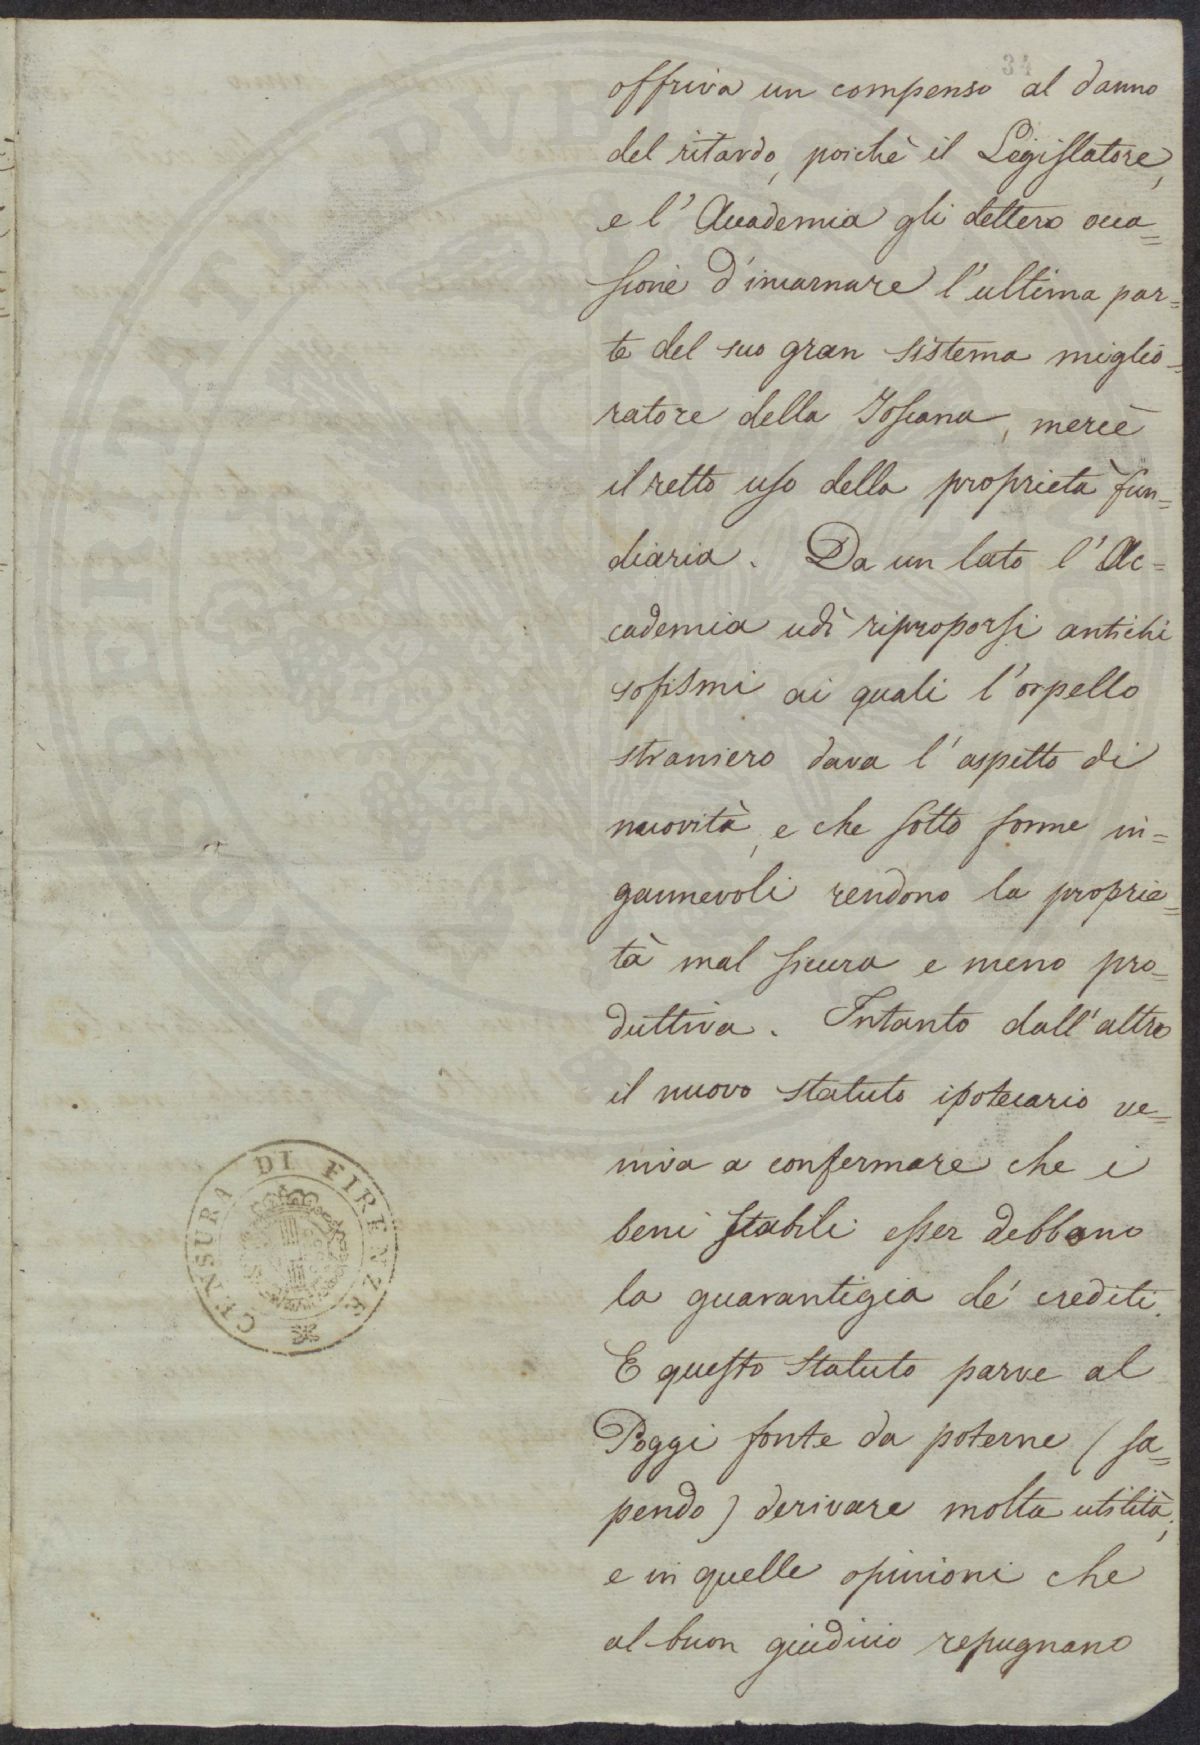 34
offriva un compenso al danno
del ritardo, poichè il Legislatore,
e l' Accademia gli dettero occa=
sione d'incarnare l'ultima par=
te del suo gran sistema miglio=
ratore della Toscana, mercè
il retto uso della proprietà fun=
diaria. Da un lato l' Ac=
cademia udì riproporsi antichi
sofismi ai quali l'orpello
straniero dava l' aspetto di
nuovità, e che sotto forme in=
gannevoli rendono la proprie=
tà mal sicura e meno pro=
duttiva. Intanto dall'altro
il nuovo statuto ipotecario ve=
niva a confermare che i
beni stabili esser debbono
la guarantigia de' crediti.
E questo statuto parve al
Poggi fonte da poterne (sa=
pendo) derivare molta utilità;
e in quelle opinioni che
al buon giudicio repugnano
CENSURA DI FIRENZE